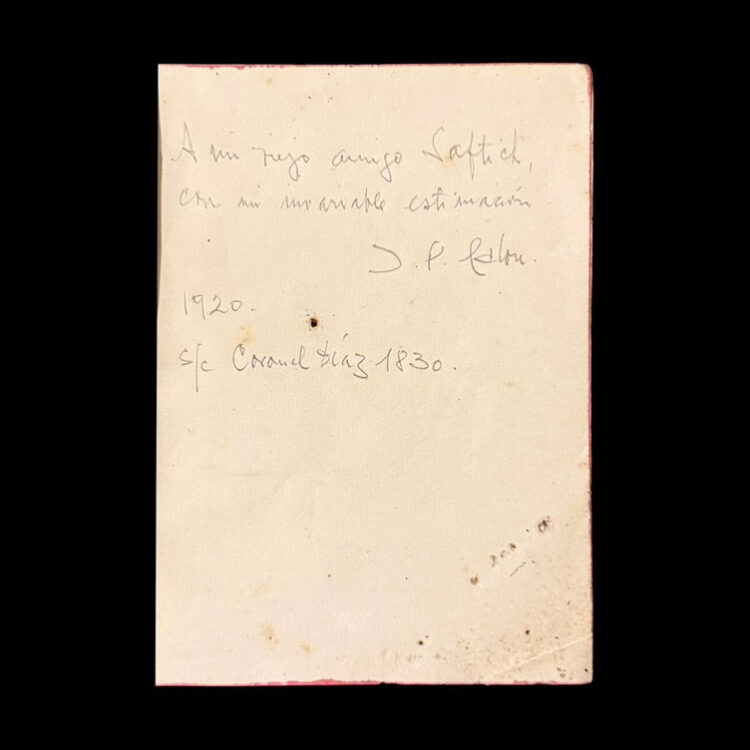 A mi viejo amigo Saftich,
con mi invariable estimación
1920.
s/c Coronel Díaz 1830.